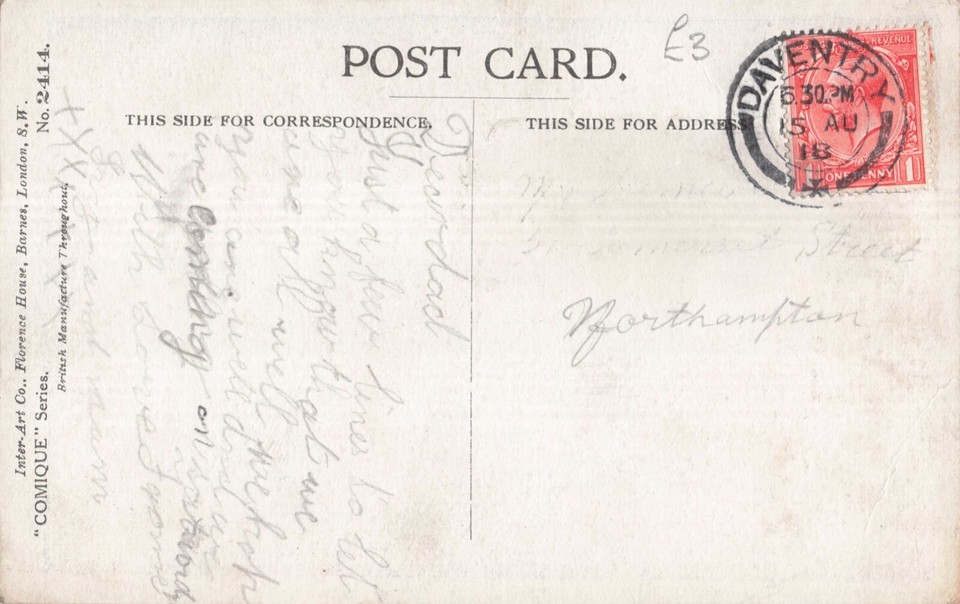 POST CARD.
£3
DAVENTRY
6.30 PM
15 AU
18
REVENUE
ONE PENNY 1
THIS SIDE FOR CORRESPONDENCE.
THIS SIDE FOR ADDRESS
Dear dad
Just a few lines to let
you know that we
are all well we hop
you are well and
are coming on
With love from
xxx
Somerset Street
Northampton
No. 2414.
Inter-Art Co., Florence House, Barnes, London, S.W.
British Manufacture Throughout.
"COMIQUE" Series.